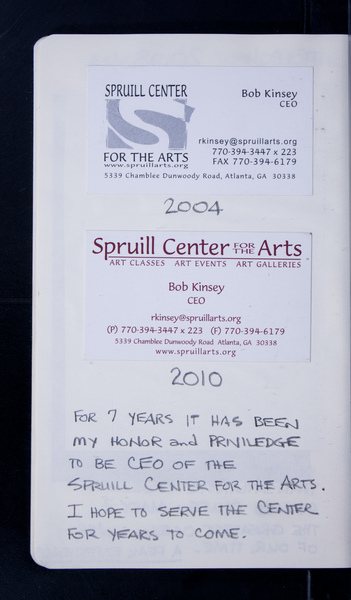 SPRUILL CENTER
FOR THE ARTS
www.spruillarts.org
Bob Kinsey
CEO
rkinsey@spruillarts.org
770-394-3447 x 223
FAX 770-394-6179
5339 Chamblee Dunwoody Road, Atlanta, GA 30338
2004
Spruill Center FOR THE Arts
ART CLASSES ART EVENTS ART GALLERIES
Bob Kinsey
CEO
rkinsey@spruillarts.org
(P) 770-394-3447 x 223 (F) 770-394-6179
5339 Chamblee Dunwoody Road Atlanta, GA 30338
www.spruillarts.org
2010
FOR 7 YEARS IT HAS BEEN
MY HONOR and PRIVILEDGE
TO BE CEO OF THE
SPRUILL CENTER FOR THE ARTS.
I HOPE TO SERVE THE CENTER
FOR YEARS TO COME.